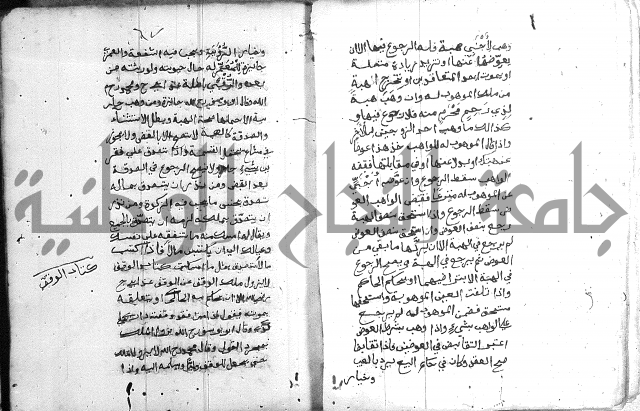 وهب لأجنبي هبة فله الرجوع فيها الا ان
يعوضه عنها او تزيد زيادة متصلة
او يموت احد المتعاقدين او تخرج الهبة
من ملك الموهوب له وان وهب هبة
لذي رحم محرم منه فلا رجوع فيها و
كذلك ما وهب احد الزوجين للاخر
واذا قال الموهوب له للواهب خذ هذا عوضا
عن هبتك او بدلا عنها او في مقابلتها فقبضه
الواهب سقط الرجوع وان عوضه اجنبي
عن الموهوب له متبرعا فقبض الواهب العوض
سقط الرجوع واذا استحق نصف الهبة
رجع بنصف العوض وان استحق نصف العوض
لم يرجع في الهبة الا ان يرد ما بقي من
العوض ثم يرجع في الهبة ولا يصح الرجوع
في الهبة الا بتراضيهما او بحكم الحاكم
واذا تلفت العين الموهوبة واستحقها
مستحق فضمن الموهوب له لم يرجع
على الواهب بشيء واذا وهب بشرط العوض
اعتبر التقابض في العوضين فاذا تقابضا
صح العقد وكان في حكم البيع يرد بالعيب
وخيار
وخيار الرؤية ويجب فيه الشفعة والعمرى
جائزة للمعمر له حال حيوته ولورثته من
بعده والرقبى باطلة عند ابي حنيفة ومحمد رح
الله وقال ابو يوسف رح الله جائزة ومن وهب جارية
الا حملها صحت الهبة وبطل الاستثناء
والصدقة كالهبة لا تصح الا بالقبض ولا تجوز
في مشاع يحتمل القسمة واذا تصدق على فقير
بن بشيء جاز ولا يصح الرجوع في الصدقة
بعد القبض ومن نذر ان يتصدق بماله
تصدق بجنس ما يجب فيه الزكوة ومن نذر
ان يتصدق بملكه لزمه ان يتصدق بالجميع
ويقال له امسك منه ما تنفقه على نفسك
وعيالك الى ان تكتسب مالا فاذا اكتسب
مالا تصدق بمثل ما امسكت كتاب الوقف
لا يزول ملك الواقف عن الوقف عند ابي ح
الا ان يحكم به الحاكم او يعلقه
بموته فيقول اذا مت فقد وقفت داري على
كذا وقال ابو يوسف رح الله يزول الملك
بمجرد القول وقال محمد رح الله لا يزول الملك
حتى يجعل للوقف وليا ويسلمه اليه واذا
كتاب الوقف
جامعة النجاح الوطنية